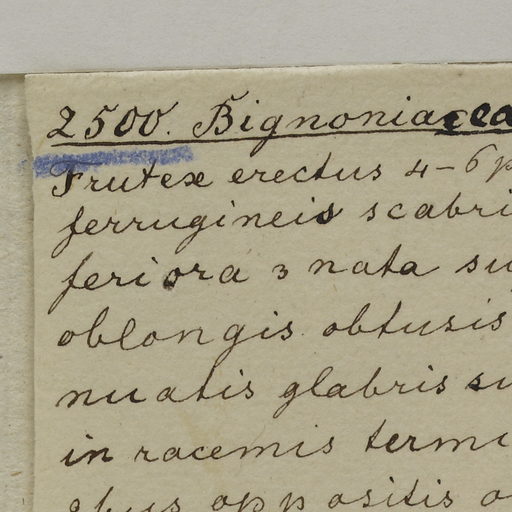 2500. Bignoniacea
Frutex erectus 4-6 p
ferrugineis scabri
feriora 3 nata su
oblongis obtusis
nuatis glabris su
in racemis termi
oppositis